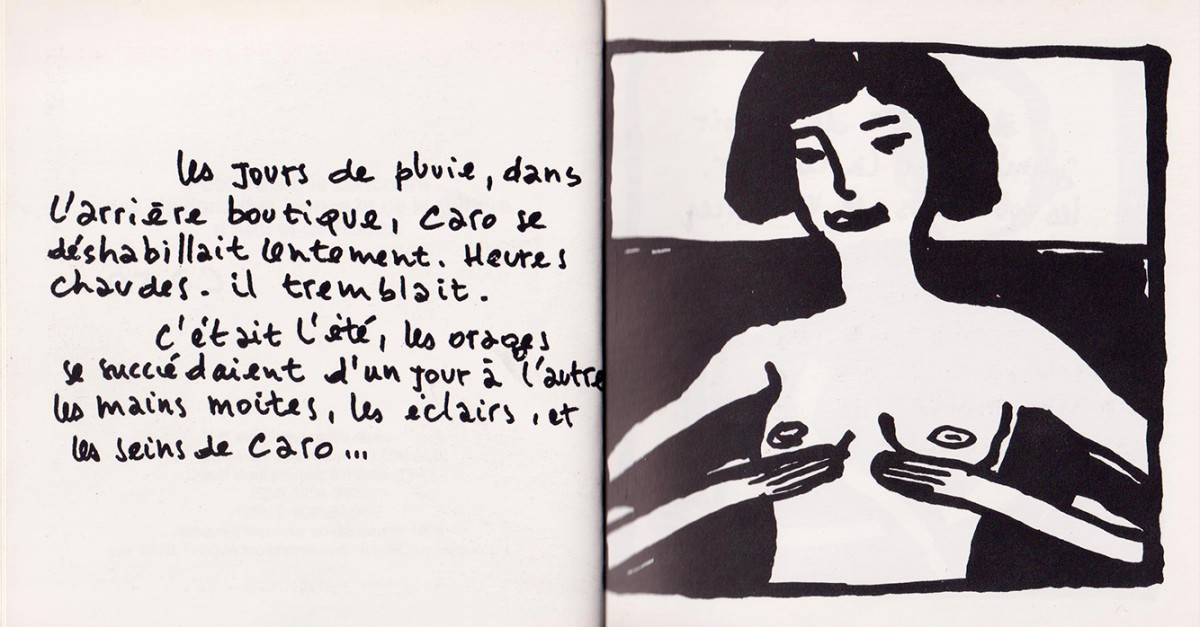 les jours de pluie, dans
l'arrière boutique, Caro se
déshabillait lentement. Heures
chaudes. il tremblait.
c'était l'été, les orages
se succédaient d'un jour à l'autre
les mains moites, les éclairs, et
les seins de Caro...